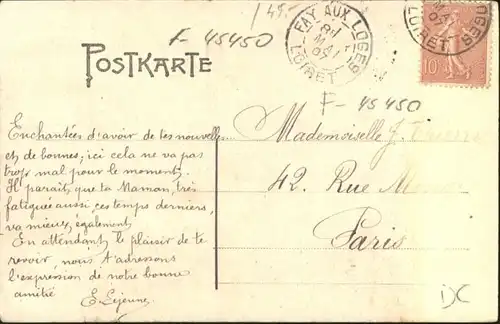 145.-
F-45450
POSTKARTE
FAY AUX LOGES
MAI
LOIRET
LOGES
LOIRET
10
F-45450
Enchantées d'avoir de tes nouvelles
et de bonnes; ici cela ne va pas
trop mal pour le moment.
Il paraît, que ta Maman, très
fatiguée aussi, ces temps derniers,
va mieux, également
En attendant le plaisir de te
revoir, nous t'adressons
l'expression de notre bonne
amitié
E. Lejeune
Mademoiselle J.
42. Rue
Paris